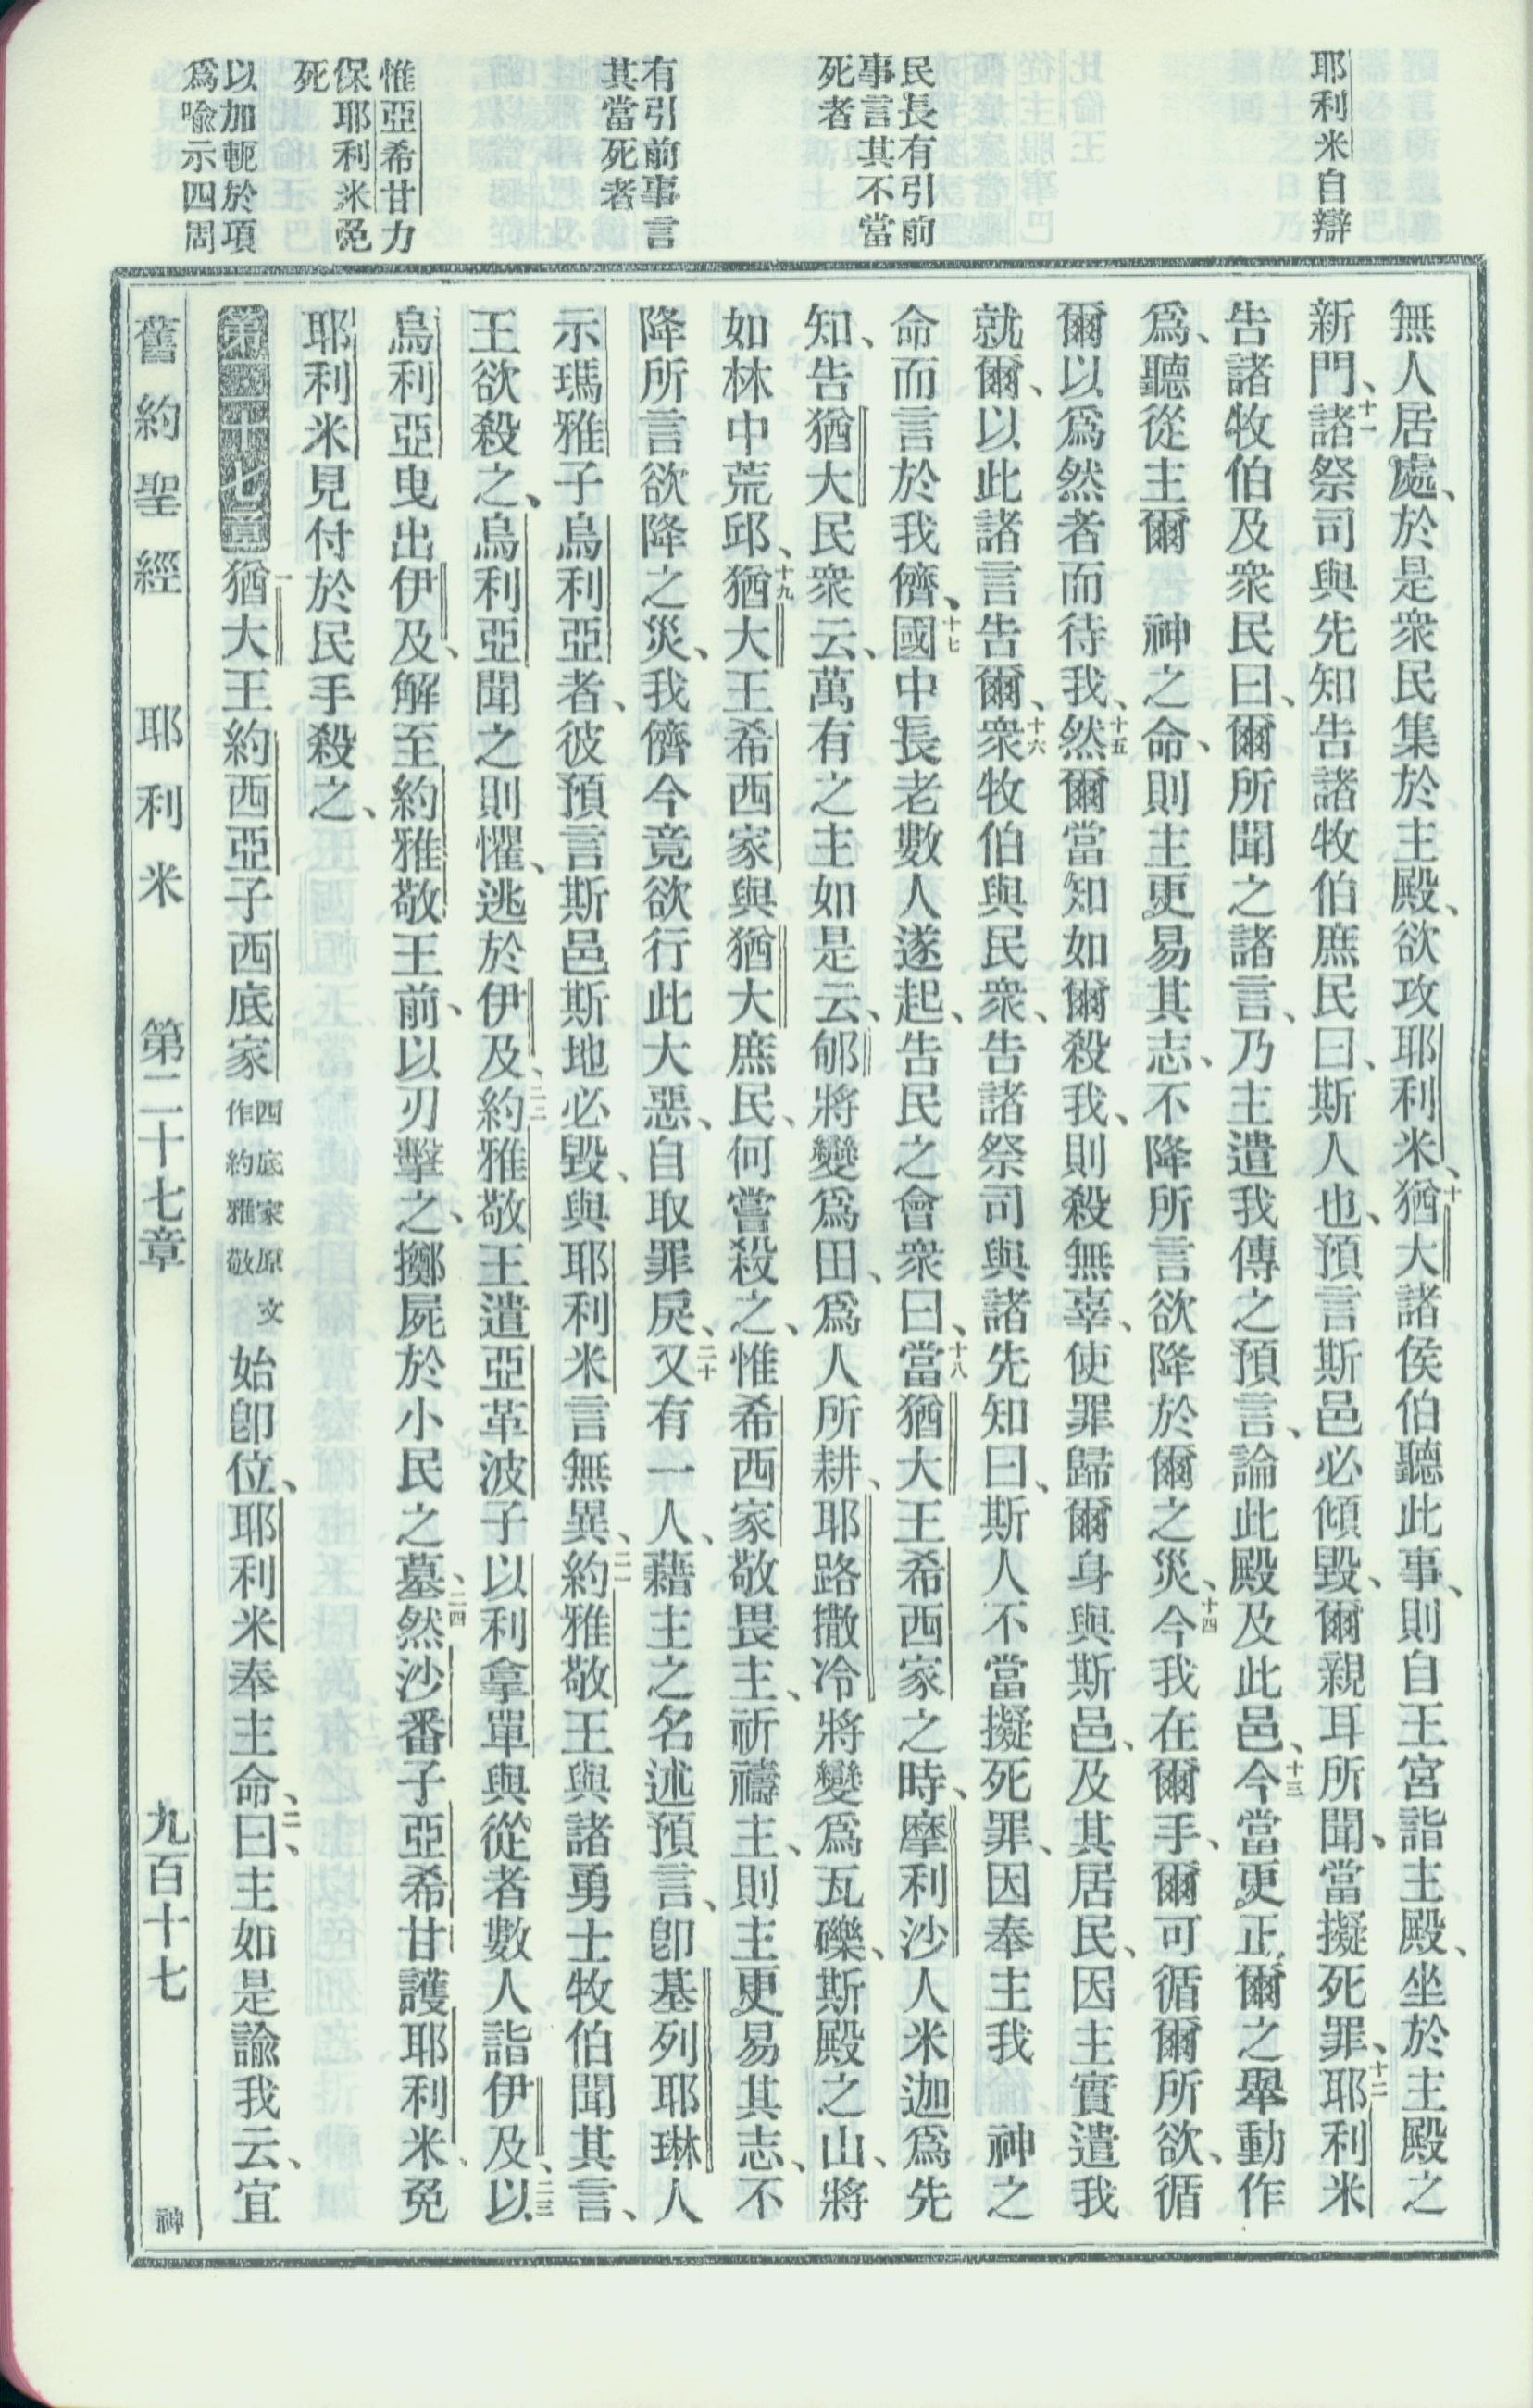 耶利米自辯
民長有引前
事言其不當
死者
有引前事言
其當死者
惟亞希甘力
保耶利米免
死
以加軛於項
爲喻示四周
無人居處、於是衆民集於主殿、欲攻耶利米、十猶大諸侯伯聽此事、則自王宮詣主殿、坐於主殿之
新門、十一諸祭司與先知告諸牧伯庶民曰、斯人也、預言斯邑必傾毀、爾親耳所聞、當擬死罪、十二耶利米
告諸牧伯及衆民曰、爾所聞之諸言、乃主遣我傳之預言、論此殿及此邑、十三今當更正爾之舉動作
爲、聽從主爾　神之命、則主更易其志、不降所言欲降於爾之災、十四今我在爾手、爾可循爾所欲、循
爾以爲然者而待我、十五然爾當知如爾殺我、則殺無辜、使罪歸爾身與斯邑、及其居民、因主實遣我
就爾、以此諸言告爾、十六衆牧伯與民衆、告諸祭司與諸先知曰、斯人不當擬死罪、因奉主我　神之
命而言於我儕、十七國中長老數人遂起、告民之會衆曰、十八當猶大王希西家之時、摩利沙人米迦爲先
知、告猶大民衆云、萬有之主如是云、郇將變爲田、爲人所耕、耶路撒冷將變爲瓦礫、斯殿之山、將
如林中荒邱、十九猶大王希西家與猶大庶民、何嘗殺之、惟希西家敬畏主、祈禱主、則主更易其志、不
降所言欲降之災、我儕今竟欲行此大惡、自取罪戾、二十又有一人、藉主之名述預言、卽基列耶琳人
示瑪雅子烏利亞者、彼預言斯邑斯地必毀、與耶利米言無異、二一約雅敬王與諸勇士牧伯聞其言、
王欲殺之、烏利亞聞之則懼、逃於伊及、二二約雅敬王遣亞革波子以利拿單與從者數人詣伊及、二三以
烏利亞曳出伊及、解至約雅敬王前、以刃擊之、擲屍於小民之墓、二四然沙番子亞希甘護耶利米、免
耶利米見付於民手殺之、
第二十七章　一猶大王約西亞子西底家西底家原文作約雅敬始卽位、耶利米奉主命、二曰、主如是諭我云、宜
舊約聖經　耶利米　第二十七章　九百十七　神